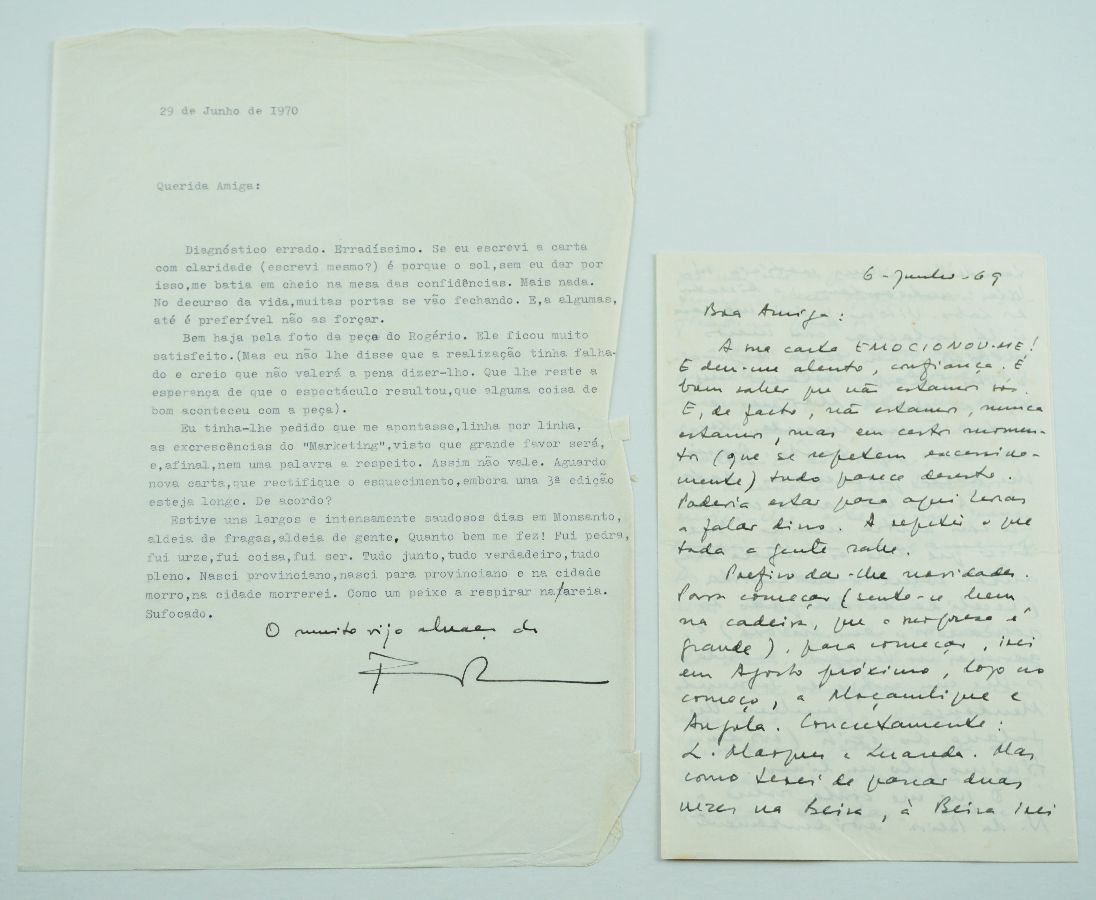 29 de Junho de I970
Querida Amiga:
Diagnóstico errado. Erradíssimo. Se eu escrevi a carta
com claridade (escrevi mesmo?) é porque o sol,sem eu dar por
isso,me batia em cheio na mesa das confidências. Mais nada.
No decurso da vida,muitas portas se vão fechando. E,a algumas,
até é preferível não as forçar.
Bem haja pela foto da peça do Rogério. Ele ficou muito
satisfeito.(Mas eu não lhe disse que a realização tinha falha-
do e creio que não valerá a pena dizer-lho. Que lhe reste a
esperança de que o espectáculo resultou,que alguma coisa de
bom aconteceu com a peça).
Eu tinha-lhe pedido que me apontasse,linha por linha,
as excrescências do "Marketing",visto que grande favor será,
e,afinal,nem uma palavra a respeito. Assim não vale. Aguardo
nova carta,que rectifique o esquecimento,embora uma 3ª edição
esteja longe. De acordo?
Estive uns largos e intensamente saudosos dias em Monsanto,
aldeia de fragas,aldeia de gente. Quanto bem me fez! Fui pedra,
fui urze,fui coisa,fui ser. Tudo junto,tudo verdadeiro,tudo
pleno. Nasci provinciano,nasci para provinciano e na cidade
morro,na cidade morrerei. Como um peixe a respirar na/areia.
Sufocado.
O muito rijo abraço do
6-Junho-69
Boa Amiga:
A sua carta EMOCIONOU-ME!
E deu-me alento, confiança. É
bom saber que não estamos sós.
E, de facto, não estamos, nunca
estamos, mas em certos momen-
tos (que se repetem excessiva-
mente) tudo parece deserto.
Poderia estar para aqui horas
a falar disso. A repetir o que
toda a gente sabe.
Prefiro dar-lhe novidades.
Para começar (sente-se bem
na cadeira, que a surpresa é
grande), para começar, irei
em Agosto próximo, logo no
começo, a Moçambique e
Angola. Concretamente:
L. Marques e Luanda. Mas
como terei de passar duas
vezes na Beira, à Beira irei